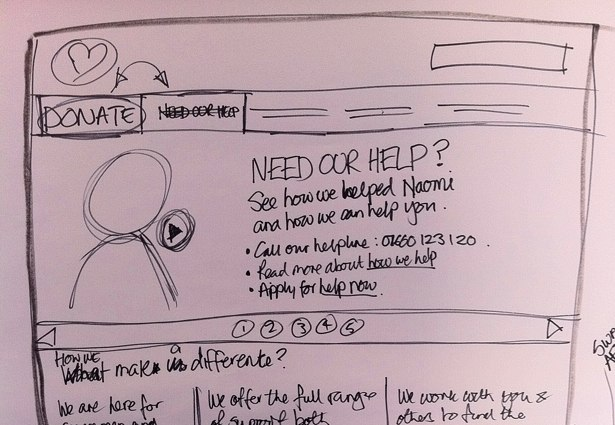 DONATE
NEED OUR HELP
NEED OUR HELP?
See how we helped Naomi
and how we can help you.
• Call our helpline: 01660 123 120.
• Read more about how we help
• Apply for help now.
1 2 3 4 5
How we
make a difference?
We are here for
We offer the full range
of support both
We work with you &
others to find the